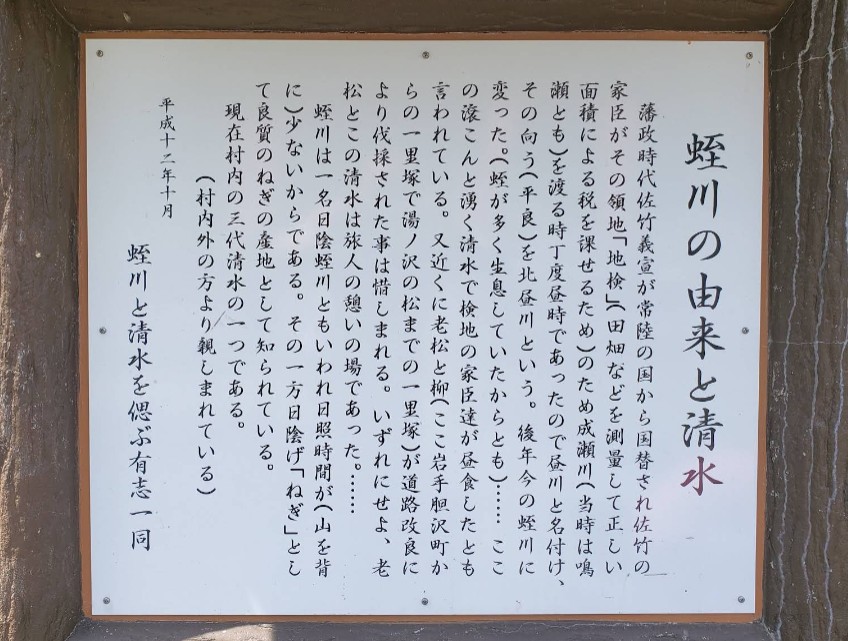 蛭川の由来と清水
藩政時代佐竹義宣が常陸の国から国替され佐竹の
家臣がその領地「地検」(田畑などを測量して正しい
面積による税を課せるため)のため成瀬川(当時は鳴
瀬とも)を渡る時丁度昼時であったので昼川と名付け、
その向う(平良)を北昼川という。後年今の蛭川に
変った。(蛭が多く生息していたからとも)…… ここ
の滾こんと湧く清水で検地の家臣達が昼食したとも
言われている。又近くに老松と柳(ここ岩手胆沢町か
らの一里塚で湯ノ沢の松までの一里塚)が道路改良に
より伐採された事は惜しまれる。いずれにせよ、老
松とこの清水は旅人の憩いの場であった。……
蛭川は一名日陰蛭川ともいわれ日照時間が(山を背
に)少ないからである。その一方日陰げ「ねぎ」とし
て良質のねぎの産地として知られている。
現在村内の三代清水の一つである。
(村内外の方より親しまれている)
平成十二年十月
蛭川と清水を偲ぶ有志一同